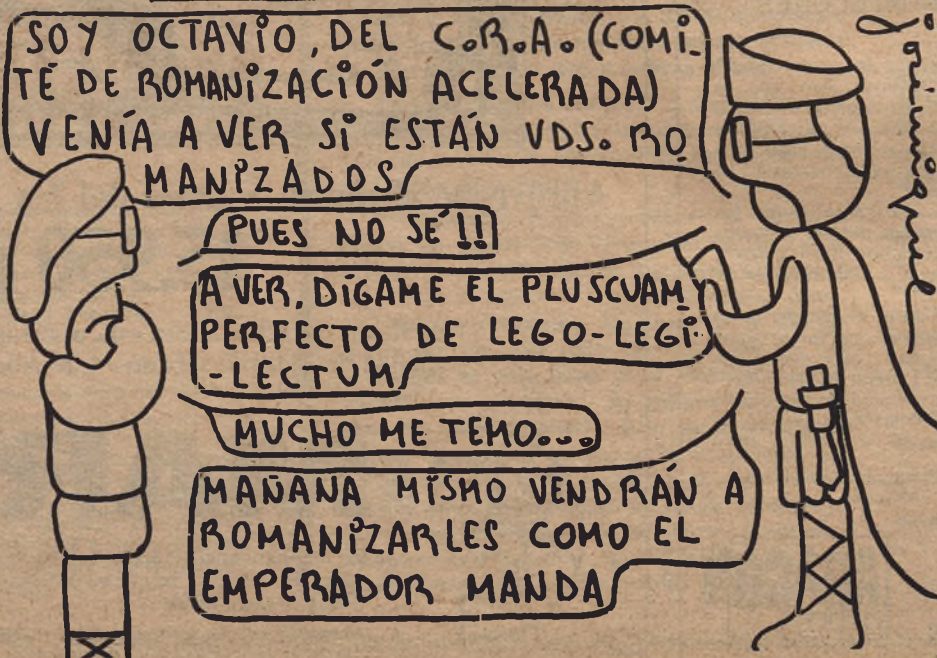 SOY OCTAVIO, DEL C.R.A. (COMI-
TÉ DE ROMANIZACIÓN ACELERADA)
VENÍA A VER SI ESTÁN VDS. RO
MANIZADOS
PUES NO SÉ!!
A VER, DÍGAME EL PLUSCUAM
PERFECTO DE LEGO-LEGI-
-LECTUM
MUCHO ME TEMO...
MAÑANA MISMO VENDRÁN A
ROMANIZARLES COMO EL
EMPERADOR MANDA